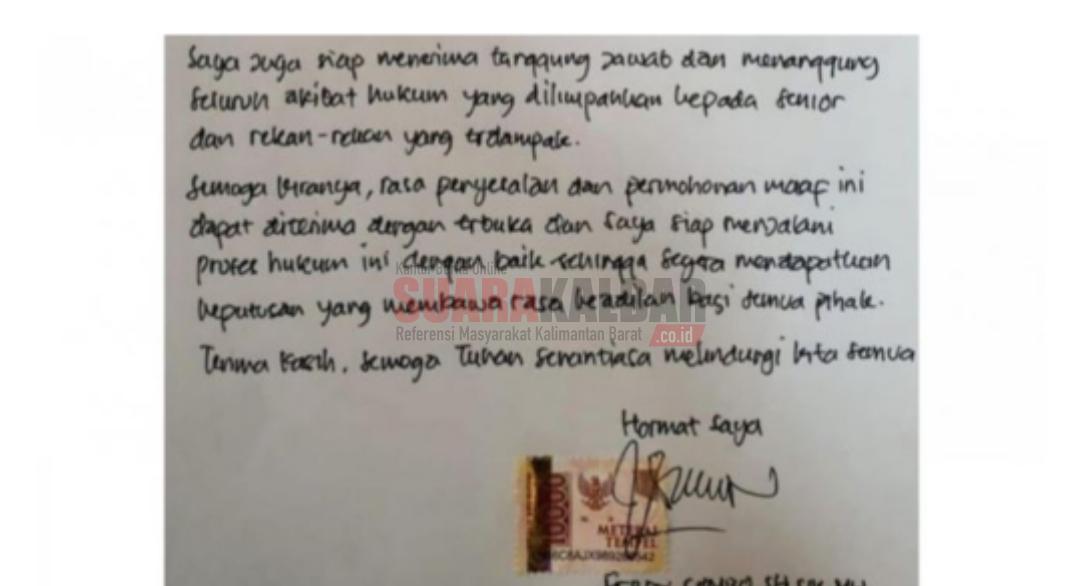 Saya juga siap menerima tanggung jawab dan menanggung
seluruh akibat hukum yang dilimpahkan kepada senior
dan rekan-rekan yang terdampak.
Semoga kiranya, rasa penyesalan dan permohonan maaf ini
dapat diterima dengan terbuka dan saya siap menjalani
proses hukum ini dengan baik sehingga segera mendapatkan
keputusan yang membawa rasa keadilan bagi semua pihak.
Kantor Berita Online
SUARAKALBAR
Referensi Masyarakat Kalimantan Barat .co.id
Terima kasih. Semoga Tuhan senantiasa melindungi kita semua
Hormat saya
10000
METERAI
TEMPEL